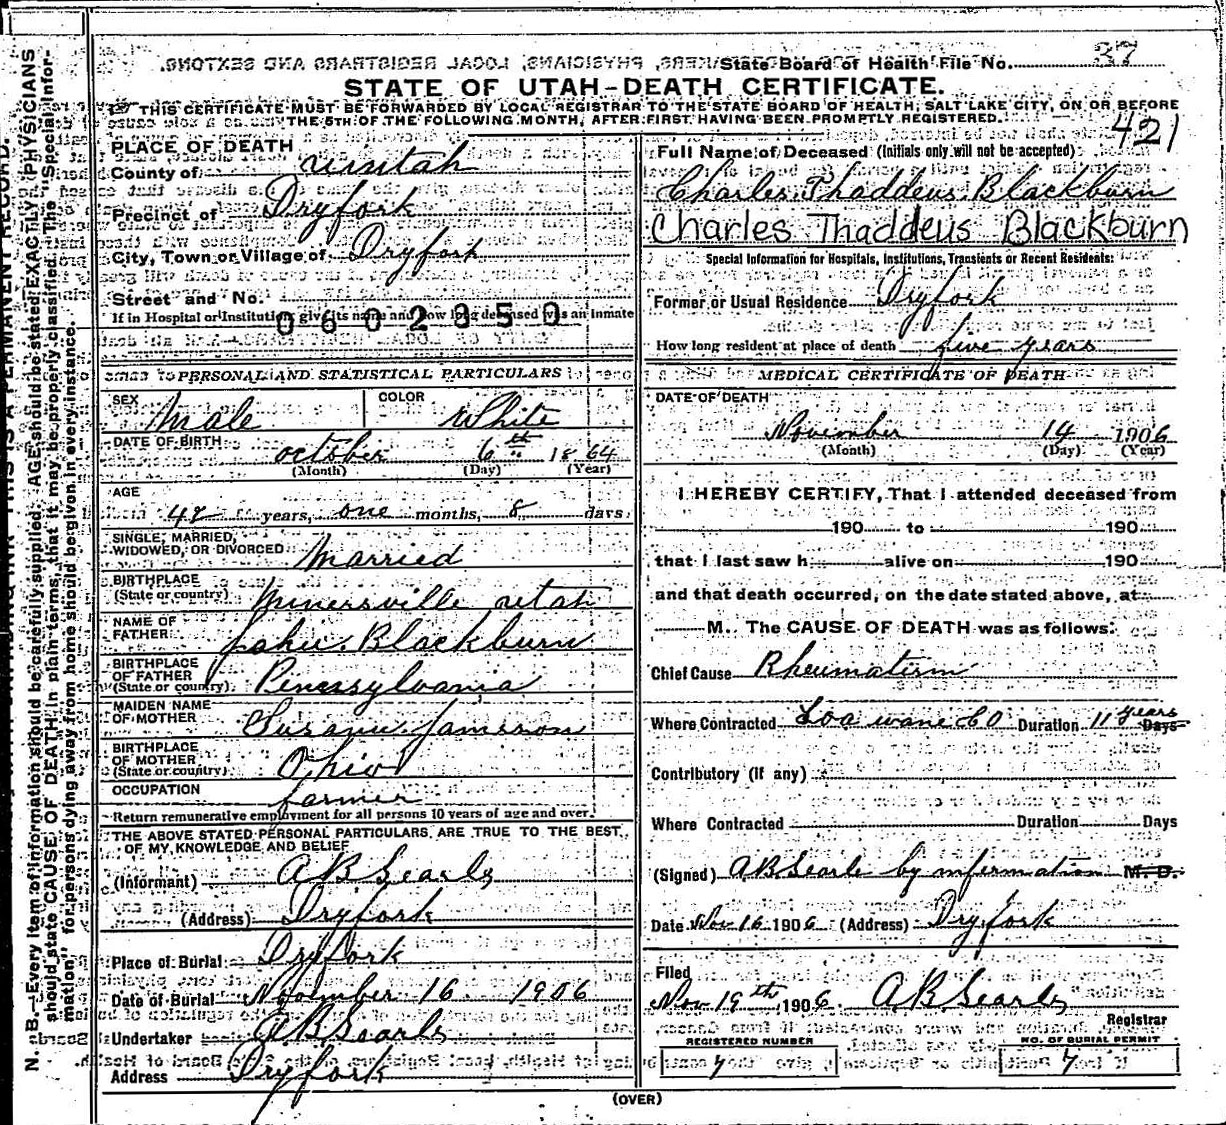 State Board of Health File No. 37
STATE OF UTAH-DEATH CERTIFICATE.
THIS CERTIFICATE MUST BE FORWARDED BY LOCAL REGISTRAR TO THE STATE BOARD OF HEALTH, SALT LAKE CITY, ON OR BEFORE
THE 5TH OF THE FOLLOWING MONTH, AFTER FIRST HAVING BEEN PROMPTLY REGISTERED.
421
PLACE OF DEATH
County of uintah
Precinct of Dryfork
City, Town or Village of Dryfork
Street and No.
If in Hospital or Institution give its name and how long deceased was an Inmate
0602350
PERSONAL AND STATISTICAL PARTICULARS
SEX Male COLOR White
DATE OF BIRTH october 6th 1864
(Month) (Day) (Year)
AGE
42 years, one months, 8 days
SINGLE, MARRIED,
WIDOWED, OR DIVORCED Married
BIRTHPLACE
(State or country) Minersville utah
NAME OF
FATHER John Blackburn
BIRTHPLACE
OF FATHER
(State or country) Pennssylvania
MAIDEN NAME
OF MOTHER Susann Jamison
BIRTHPLACE
OF MOTHER
(State or country) Ohio
OCCUPATION farmer
Return remunerative employment for all persons 10 years of age and over.
THE ABOVE STATED PERSONAL PARTICULARS ARE TRUE TO THE BEST
OF MY KNOWLEDGE AND BELIEF
(Informant) A B Searls
(Address) Dryfork
Place of Burial Dryfork
Date of Burial November 16 1906
Undertaker A B Searls
Address Dryfork
Full Name of Deceased (Initials only will not be accepted)
Charles Thaddeus Blackburn
Charles Thaddeus Blackburn
Special Information for Hospitals, Institutions, Transients or Recent Residents:
Former or Usual Residence Dryfork
How long resident at place of death five years
MEDICAL CERTIFICATE OF DEATH
DATE OF DEATH
November 14 1906
(Month) (Day) (Year)
I HEREBY CERTIFY, That I attended deceased from
190 to 190
that I last saw h alive on 190
and that death occurred, on the date stated above, at
M. The CAUSE OF DEATH was as follows:
Chief Cause Rheumatism
Where Contracted Loa wane CO Duration 11 years Days
Contributory (If any)
Where Contracted Duration Days
(Signed) A B Searle by information M. D.
Date Nov 16 1906 (Address) Dryfork
Filed
Nov 19th 1906. A B Searls
Registrar
REGISTERED NUMBER
7
NO. OF BURIAL PERMIT
7
(OVER)
N. B.—Every item of information should be carefully supplied. AGE should be stated EXACTLY. PHYSICIANS
should state CAUSE OF DEATH in plain terms, that it may be properly classified. The "Special Infor-
mation" for persons dying away from home should be given in every instance.